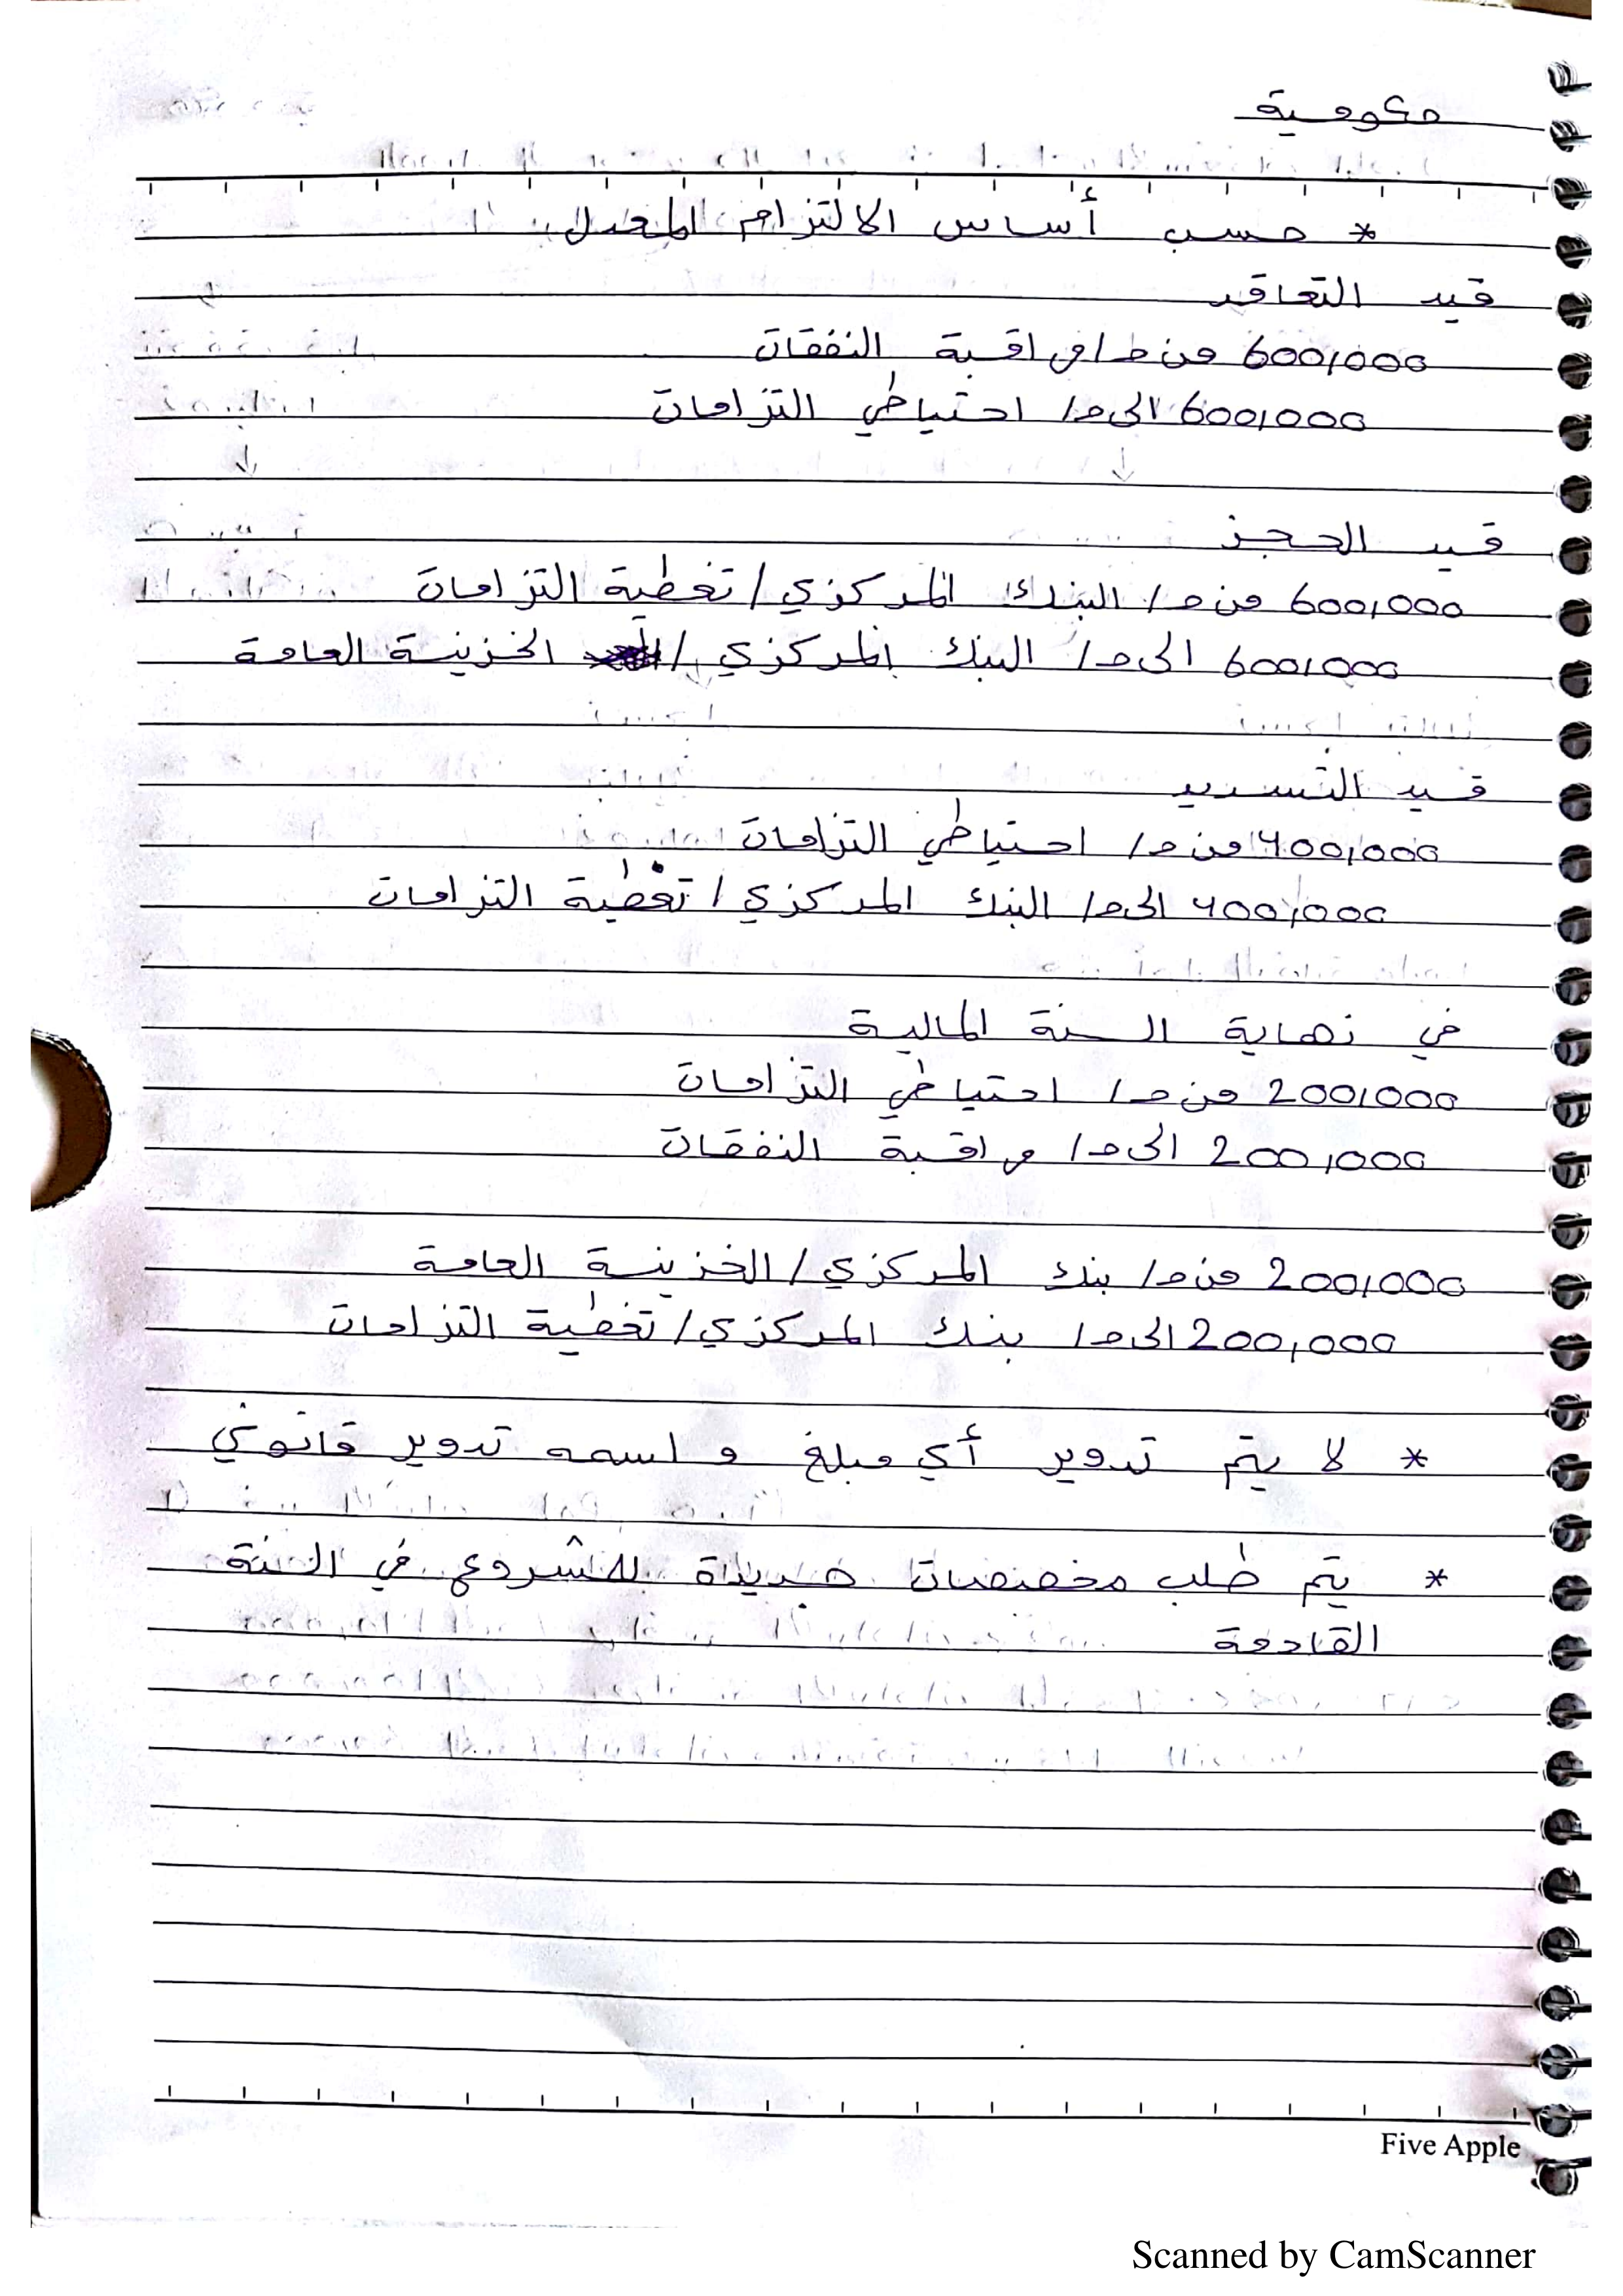 حكومية
* حسب أساس الالتزام المعدل
قيد التعاقد
600,000 من ح/ مراقبة النفقات
600,000 الى ح/ احتياطي التزامات
قيد الحجز
600,000 من ح/ البنك المركزي / تغطية التزامات
600,000 الى ح/ البنك المركزي / الخزينة العامة
قيد التسديد
400,000 من ح/ احتياطي التزامات
400,000 الى ح/ البنك المركزي / تغطية التزامات
في نهاية السنة المالية
200,000 من ح/ احتياطي التزامات
200,000 الى ح/ مراقبة النفقات
200,000 من ح/ بنك المركزي / الخزينة العامة
200,000 الى ح/ بنك المركزي / تغطية التزامات
* لا يتم تدوير أي مبلغ و اسمه تدوير قانوني
* يتم طلب مخصصات جديدة للمشروع في السنة
القادمة
Five Apple
Scanned by CamScanner